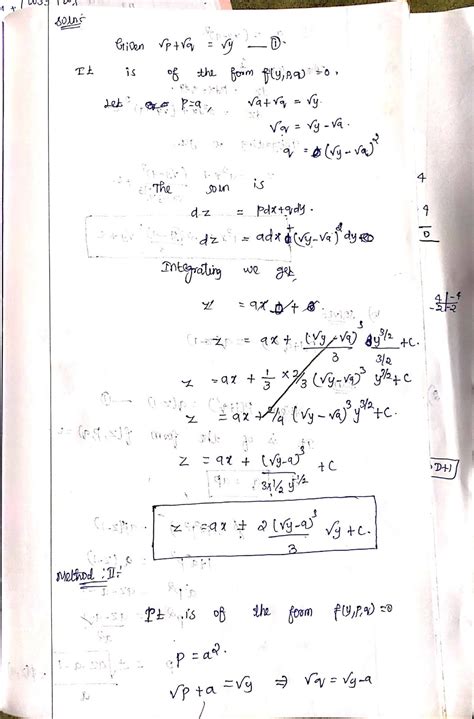 Soln:-
Given √p+√q = √y — ①.
It is of the form f(y,p,q)=0.
Let p=a, √a+√q = √y.
√q = √y-√a.
q = (√y-√a)²
The soln is
dz = pdx+qdy.
dz = adx + (√y-√a)² dy
Integrating we get
z = ax +
z = ax + (√y-√a)³/3 y^3/2/3/2 +c.
z = ax + 1/3 × 2/3 (√y-√a)³ y^3/2 + c
z = ax + 2/9 (√y-√a)³ y^3/2 + c.
z = ax + (√y-a)³/3×1/2 y^-1/2 + c
z = ax + 2(√y-a)³/3 √y + c.
Method : II :-
It is of the form f(y,p,q)=0
p = a².
√p+a = √y ⇒ √q = √y-a
4
9
D
4|-4
-2|-2
D+1